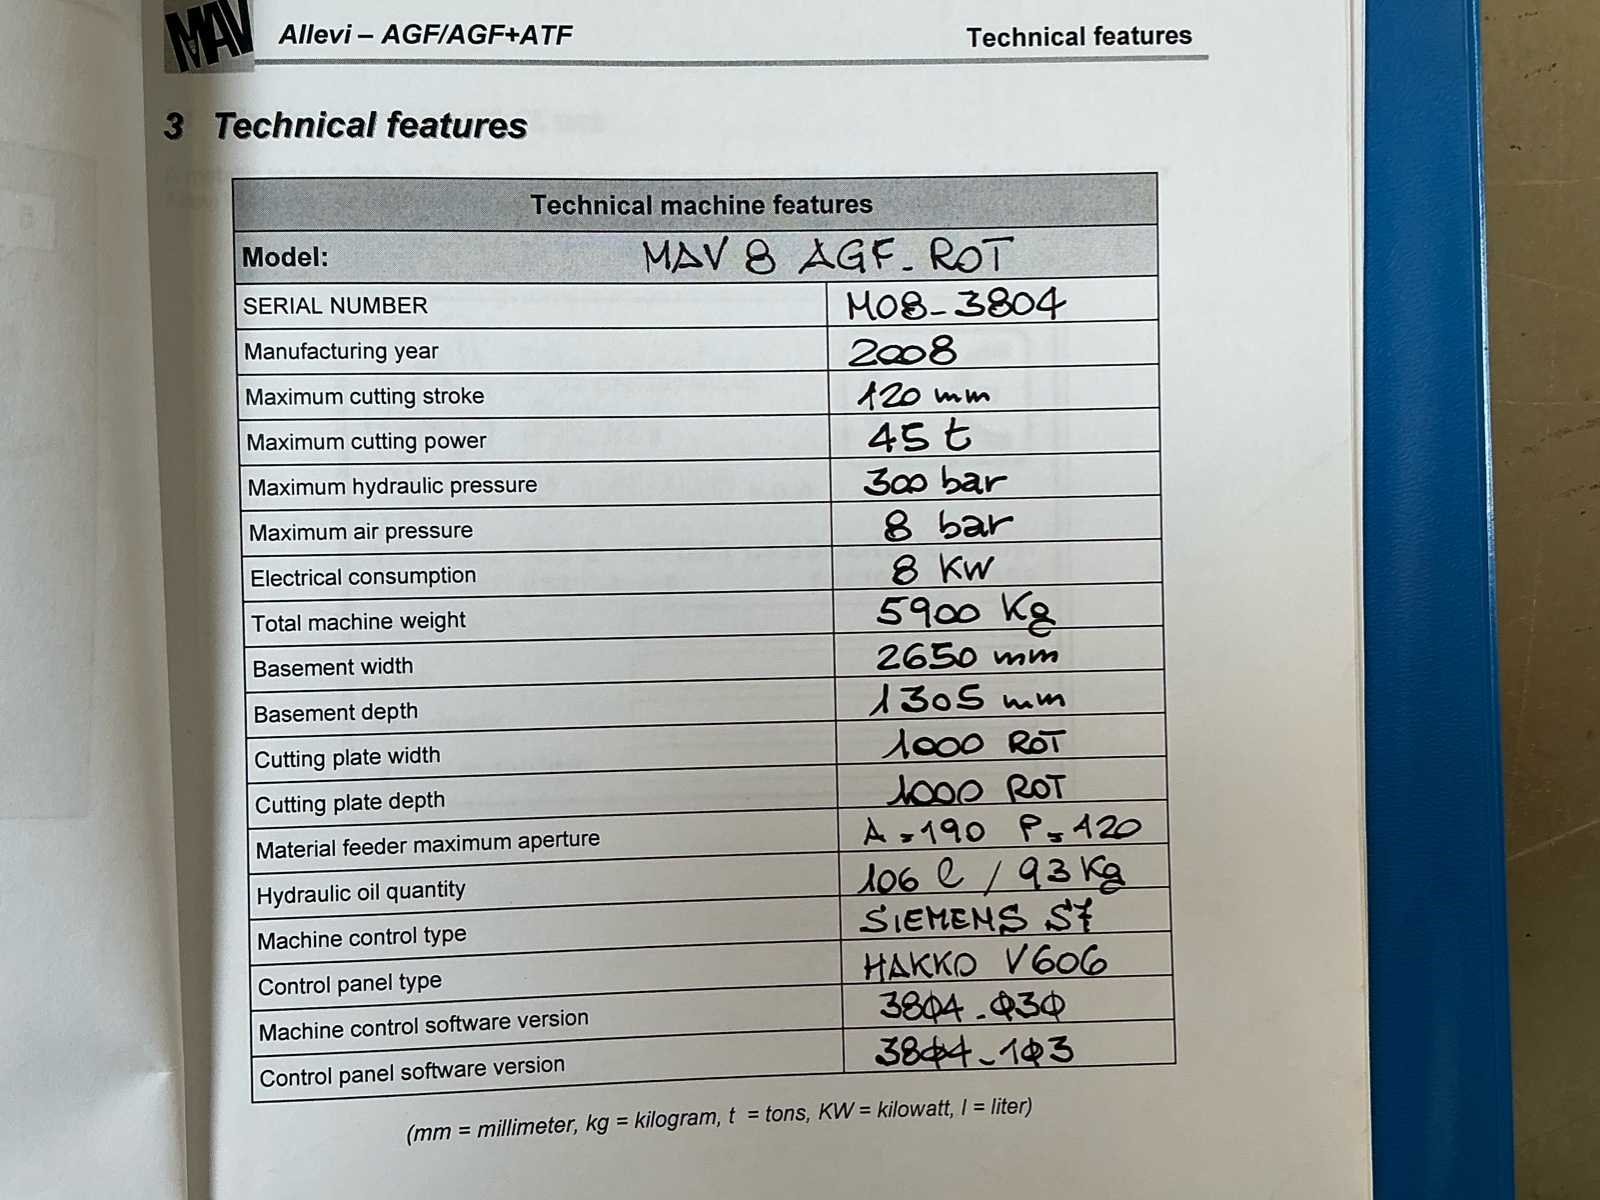 MAV
Allevi – AGF/AGF+ATF Technical features
3 Technical features
Technical machine features
Model: MAV 8 AGF_ ROT
SERIAL NUMBER M08_3804
Manufacturing year 2008
Maximum cutting stroke 120 mm
Maximum cutting power 45 t
Maximum hydraulic pressure 300 bar
Maximum air pressure 8 bar
Electrical consumption 8 KW
Total machine weight 5900 Kg
Basement width 2650 mm
Basement depth 1305 mm
Cutting plate width 1000 ROT
Cutting plate depth 1000 ROT
Material feeder maximum aperture A=190 P=120
Hydraulic oil quantity 106 l / 93 Kg
Machine control type SIEMENS S7
Control panel type HAKKO V606
Machine control software version 38Ø4_Ø3Ø
Control panel software version 38Ø4_1Ø3
(mm = millimeter, kg = kilogram, t = tons, KW = kilowatt, l = liter)